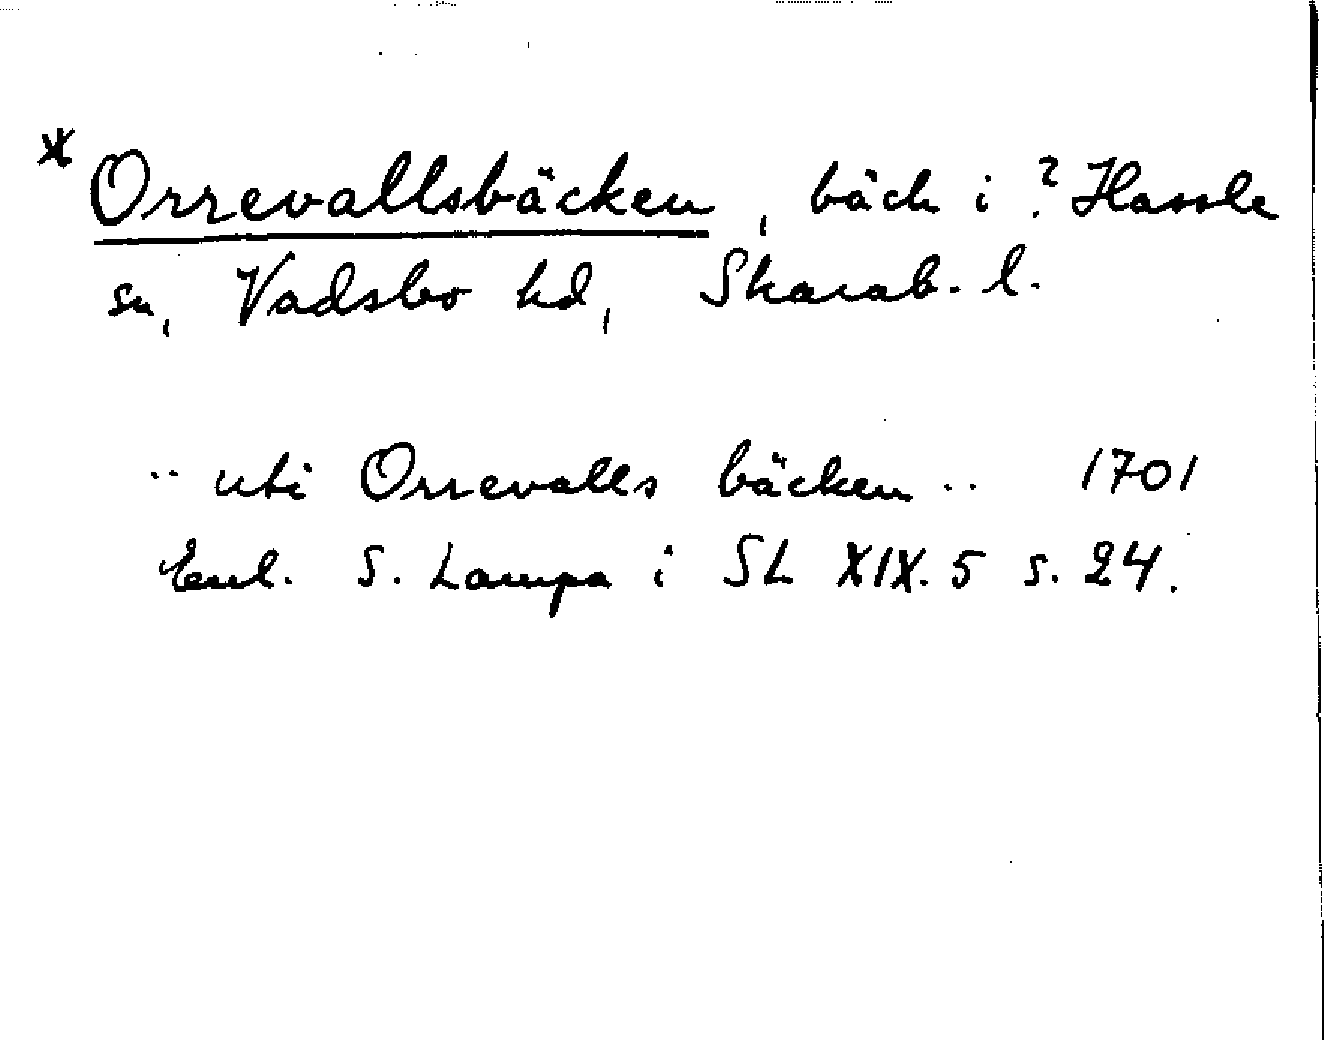 * Orrevallsbäcken, bäck i ? Hassle
sn, Vadsbo hd, Skarab. l.
.. uti Orrevalls bäcken .. 1701
Enl. S. Lampa i SL XIX. 5 s. 24.